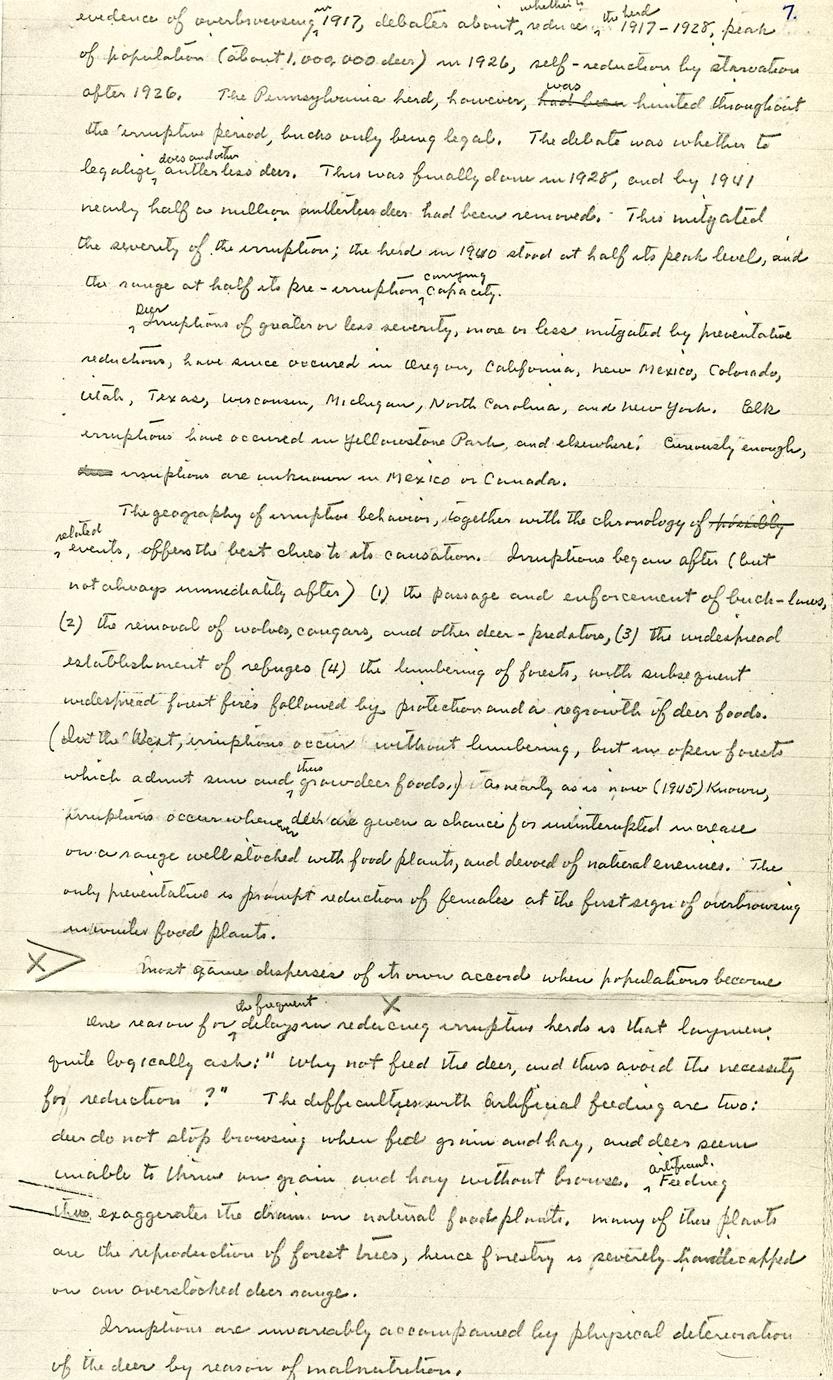 7.
evidence of overbrowsing in 1917, debates about whether to reduce the herd 1917-1928, peak
of population (about 1,000,000 deer) in 1926, self-reduction by starvation
after 1926. The Pennsylvania herd, however, had been was hunted throughout
the irruptive period, bucks only being legal. The debate was whether to
legalize does and other antlerless deer. This was finally done in 1928, and by 1941
nearly half a million antlerless deer had been removed. This mitgated
the severity of the irruption; the herd in 1940 stood at half its peak level, and
the range at half its pre-irruption carrying capacity.
Deer Irruptions of greater or less severity, more or less mitigated by preventative
reductions, have since occured in Oregon, California, New Mexico, Colorado,
Utah, Texas, Wisconsin, Michigan, North Carolina, and New York. Elk
irruptions have occured in Yellowstone Park, and elsewhere. Curiously enough,
irruptions are unknown in Mexico or Canada.
The geography of irruptive behavior, together with the chronology of possibly
related events, offers the best clues to its causation. Irruptions began after (but
not always immediately after) (1) the passage and enforcement of buck-laws,
(2) the removal of wolves, cougars, and other deer-predators, (3) the widespread
establishment of refuges (4) the lumbering of forests, with subsequent
widespread forest fires followed by protection and a regrowth of deer foods.
(In the West, irruptions occur without lumbering, but in open forests
which admit sun and thus grow deer foods.) As nearly as is now (1945) known,
irruptions occur whenever deer are given a chance for uninterrupted increase
on a range well stocked with food plants, and devoid of natural enemies. The
only preventative is prompt reduction of females at the first sign of overbrowsing
in winter food plants.
X Most game disperses of its own accord when populations become
X
One reason for the frequent delays in reducing irruptive herds is that laymen
quite logically ask: "Why not feed the deer, and thus avoid the necessity
for reduction?" The difficulties with artificial feeding are two:
deer do not stop browsing when fed grain and hay, and deer seem
unable to thrive on grain and hay without browse. Artificial Feeding
thus exaggerates the drain on natural food plants. Many of these plants
are the reproduction of forest trees, hence forestry is severely handicapped
on an overstocked deer range.
Irruptions are invariably accompanied by physical deterioration
of the deer by reason of malnutrition.